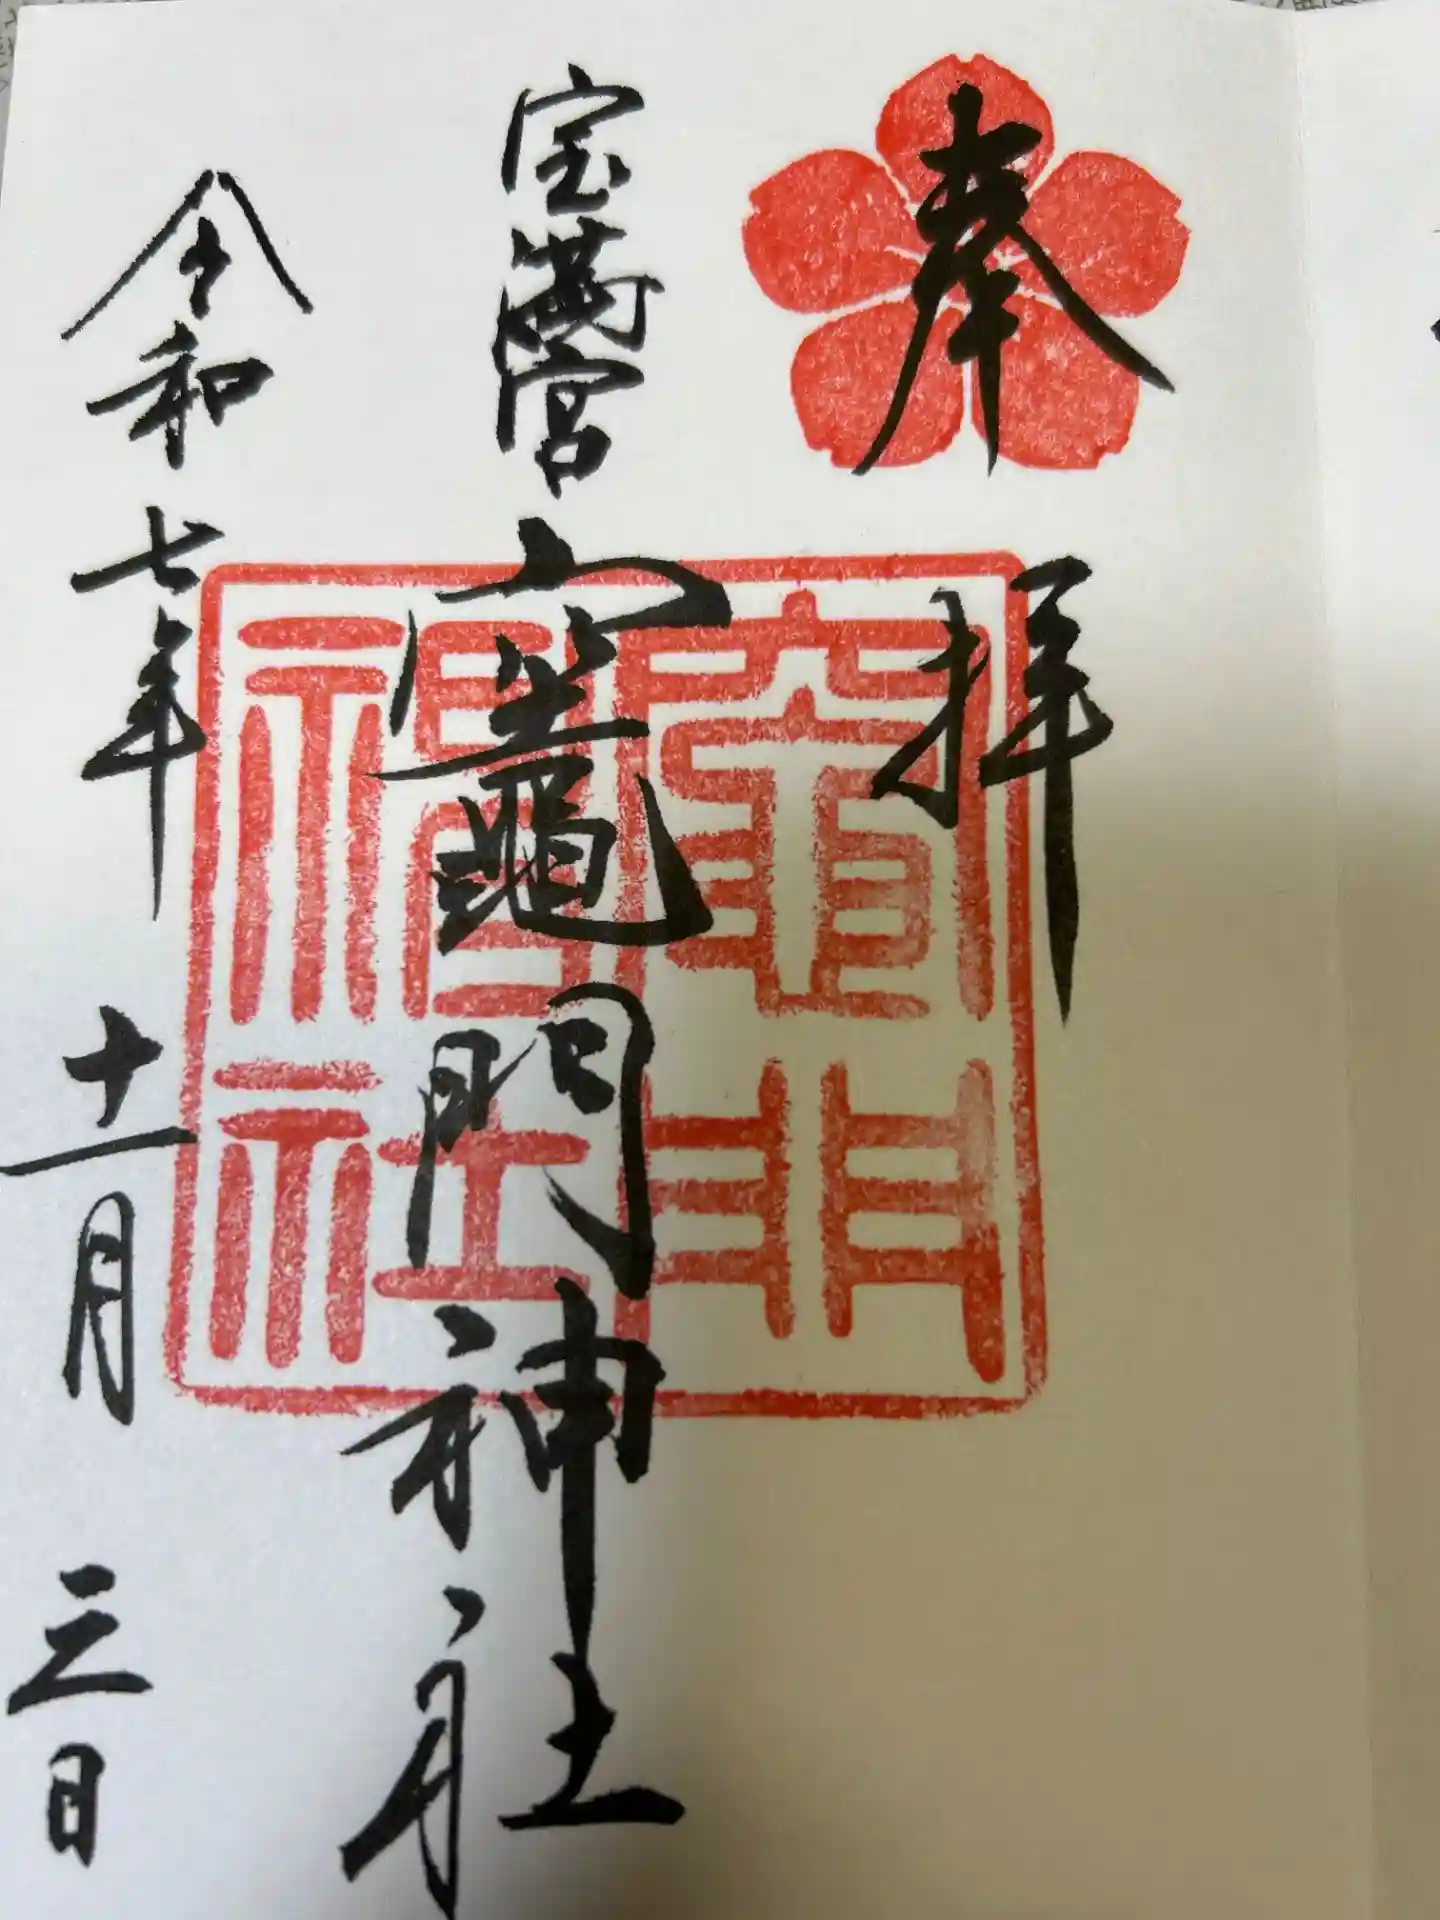 奉拝
宝満宮
竈門神社
竈門
神社
令和七年十一月三日